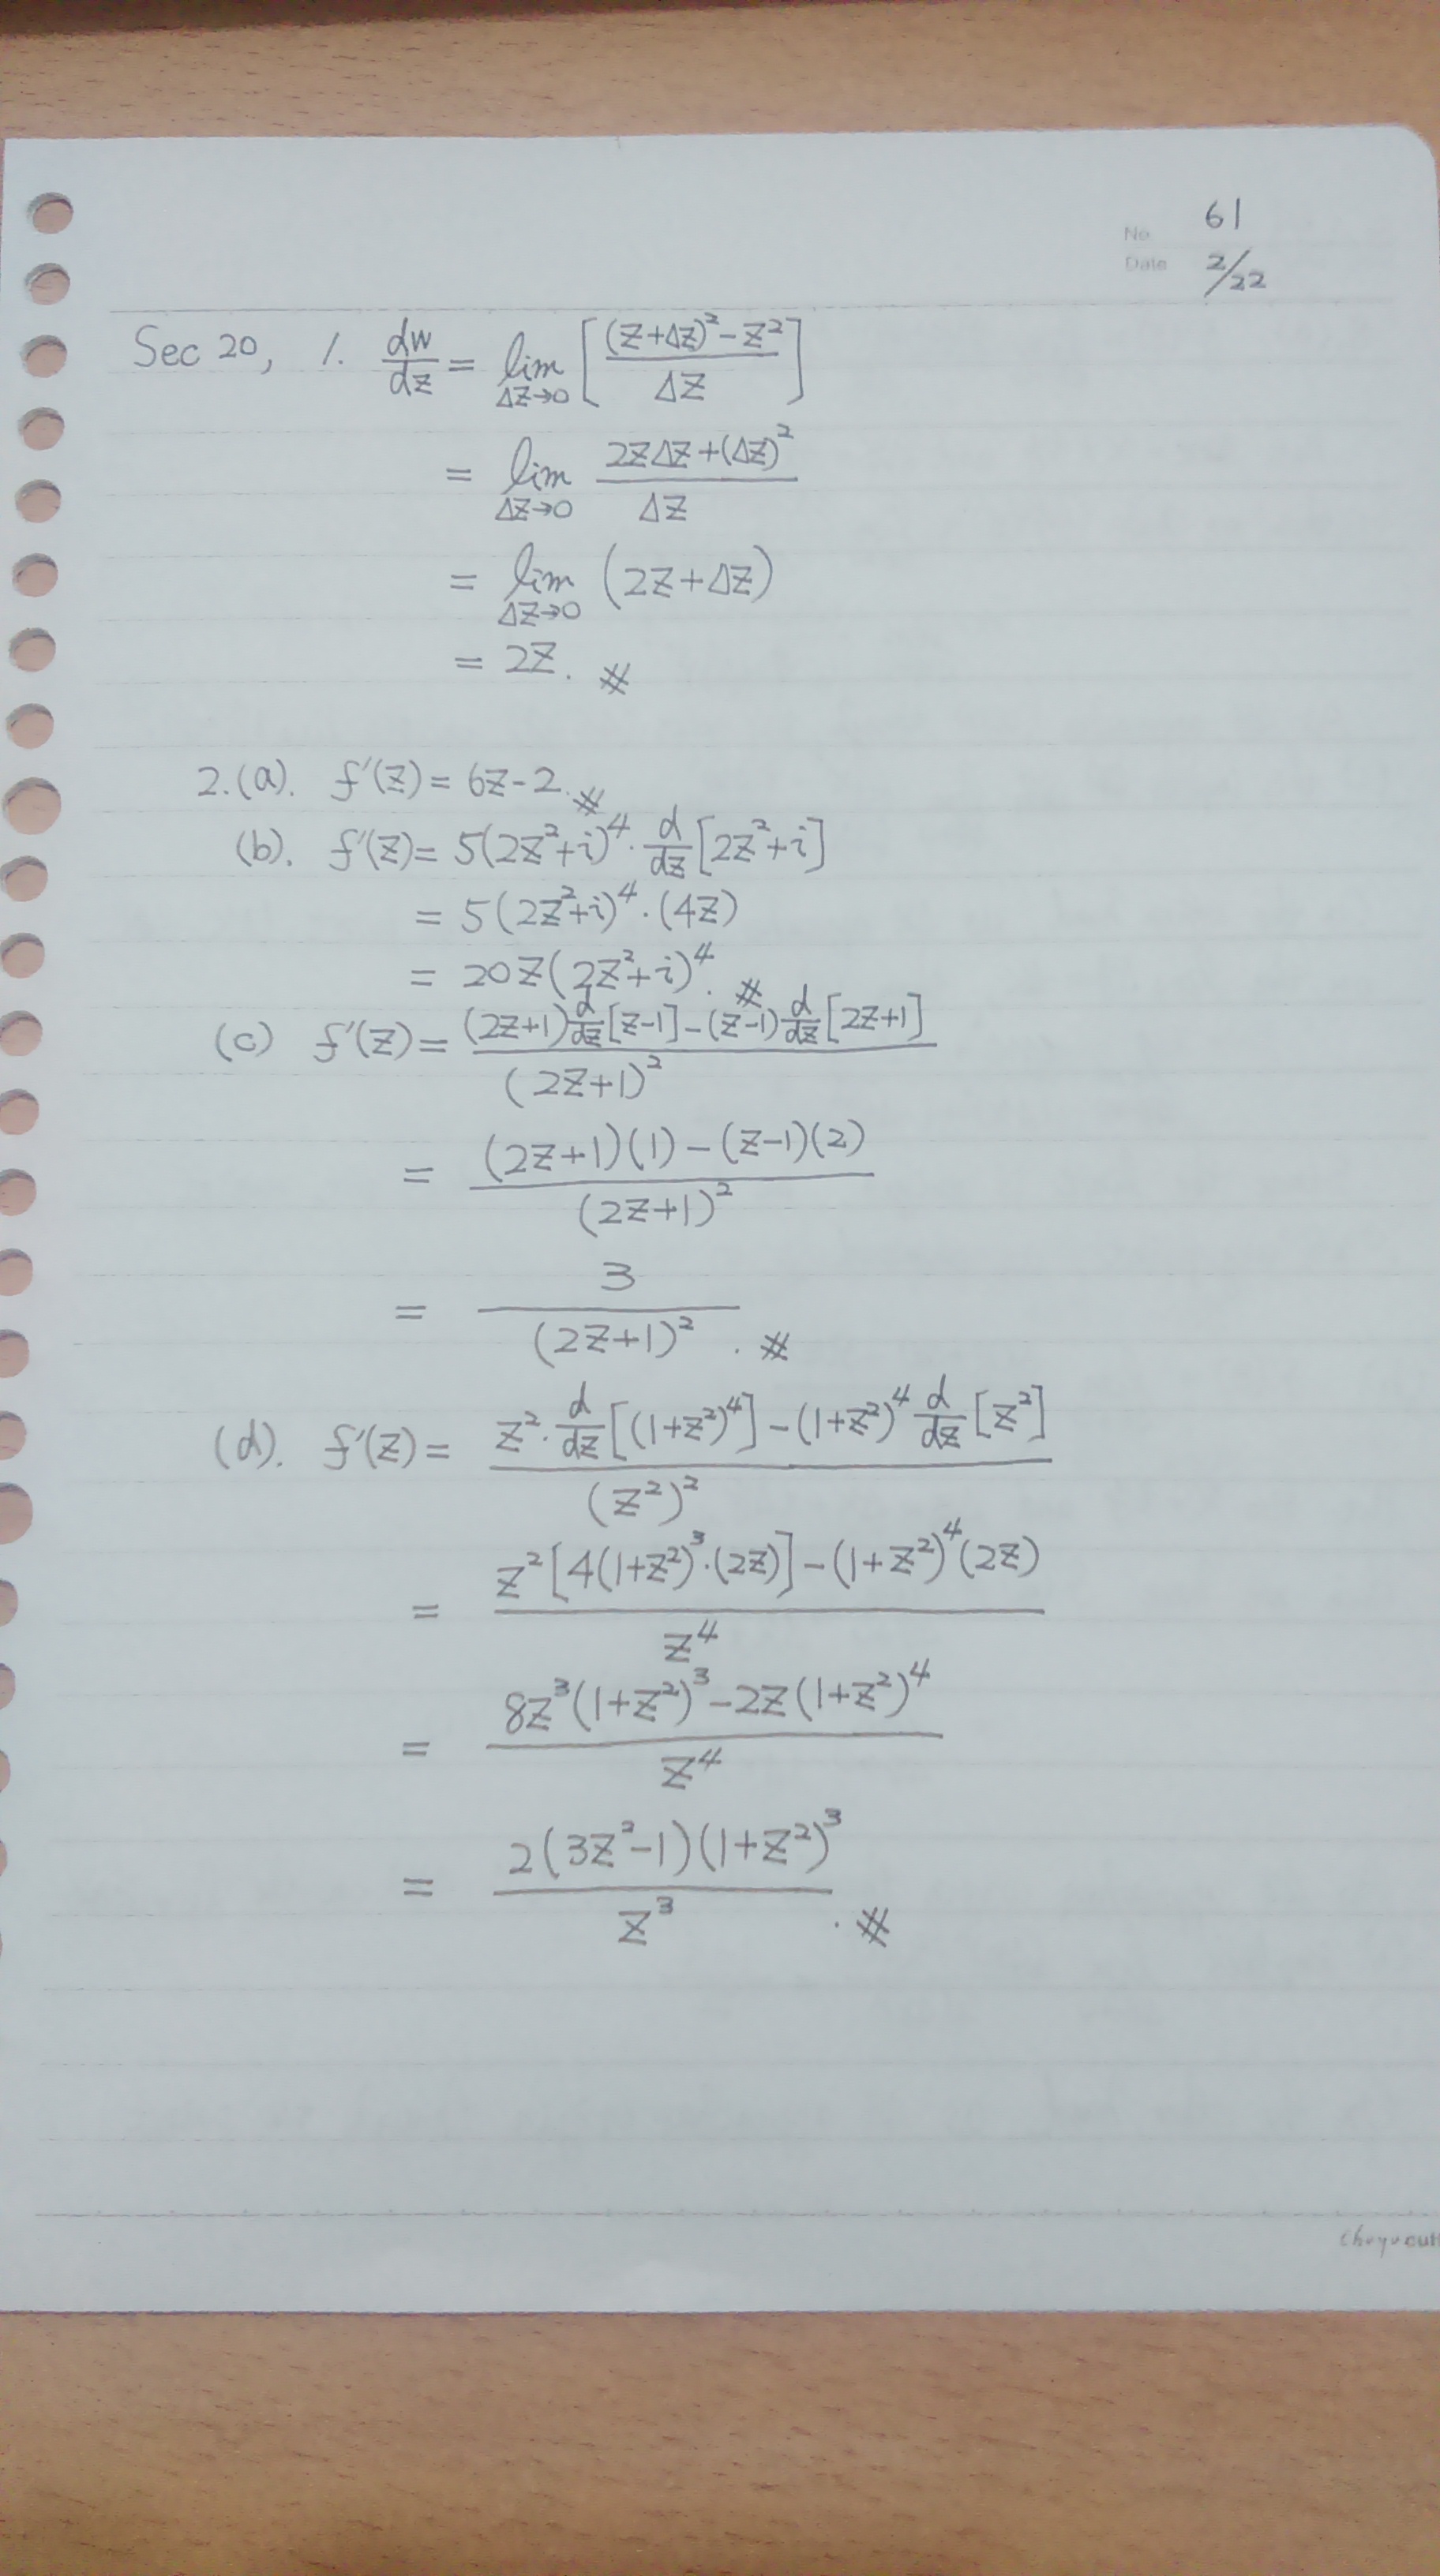 No 61
Date 2/22
Sec 20, 1. dw/dz = lim_{Δz→0} [((z+Δz)²-z²)/Δz]
= lim_{Δz→0} (2zΔz+(Δz)²)/Δz
= lim_{Δz→0} (2z+Δz)
= 2z. #
2.(a). f'(z) = 6z-2. #
(b). f'(z) = 5(2z²+i)⁴· d/dz [2z²+i]
= 5(2z²+i)⁴·(4z)
= 20z(2z²+i)⁴. #
(c) f'(z) = ((2z+1) d/dz [z-1] - (z-1) d/dz [2z+1])/(2z+1)²
= ((2z+1)(1)-(z-1)(2))/(2z+1)²
= 3/(2z+1)². #
(d). f'(z) = (z²· d/dz [(1+z²)⁴] - (1+z²)⁴ d/dz [z²])/(z²)²
= (z²[4(1+z²)³·(2z)]-(1+z²)⁴(2z))/z⁴
= (8z³(1+z²)³-2z(1+z²)⁴)/z⁴
= (2(3z²-1)(1+z²)³)/z³. #